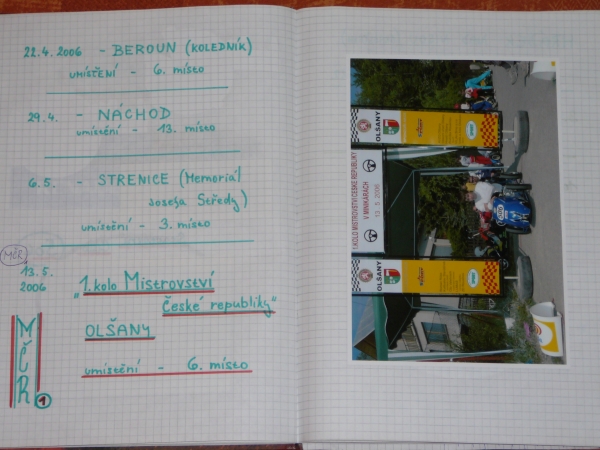 22.4.2006 - BEROUN (KOLEDNÍK)
UMÍSTĚNÍ - 6. místo
29.4. - NÁCHOD
umístění - 13. místo
6.5. - STRENICE (Memoriál
Josefa Středy)
umístění - 3. místo
MČR
13.5.
2006
"1. kolo Mistrovství
České republiky"
OLŠANY
umístění - 6. místo
MČR
1
OLŠANY
1.KOLO MISTROVSTVÍ ČESKÉ REPUBLIKY
V MINIKÁRÁCH
13. 5. 2006
OLŠANY